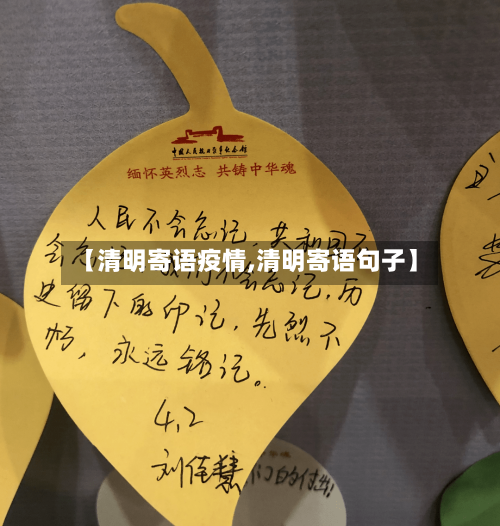 中国人民抗日战争纪念馆
缅怀英烈志 共铸中华魂
人民不会忘记,共和国不
会忘记,我们不会忘记,历
【清明寄语疫情,清明寄语句子】
史留下的印记,先烈不
朽,永远铭记。
4,2
刘佳慧
们的付出!